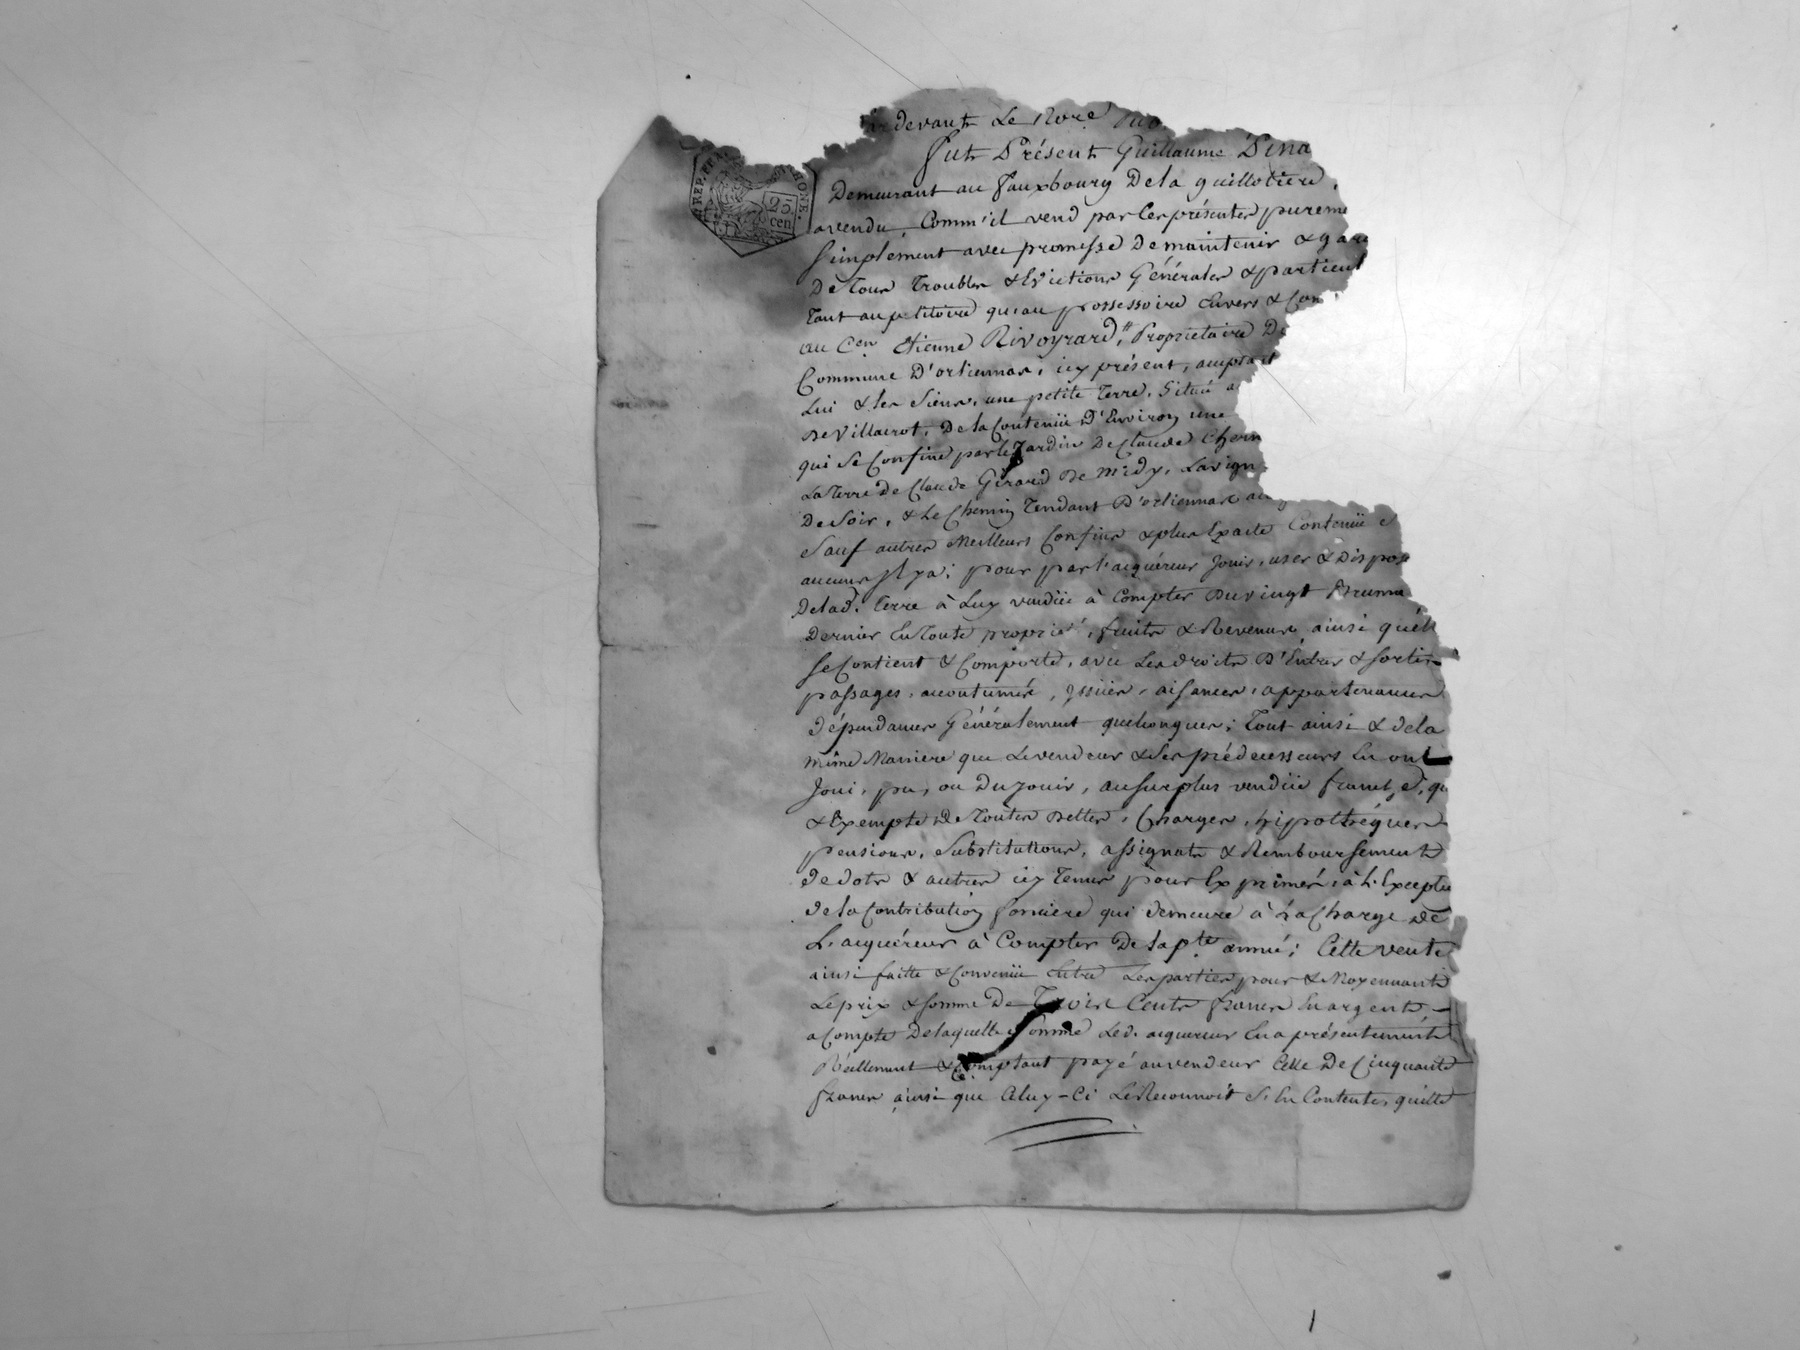 REP. FRA RHONE.
25 cen
ardevant Le Nore. Pub
fut Présent Guillaume Pina
Demeurant au fauxbourg De la guillotiere,
a vendu, Comm'il vend par Ces présentes pureme
Simplement avec promesse De maintenir & gara
De Tous Troubles & Evictions Générales & particul
Tant au petitoire qu'au possessoire Envers & Con
au Cen. Etienne Rivoyrard, Propriétaire De
Commune D'orliennas, icy présent, acceptant
Lui & les Siens, une petite Terre, Situé a
De Villacrot, De la Contenüe D'Environ une
qui se Confine par le Jardin De Claude Chern
La Terre de Claude Girard De midy, La vign
De Soir, & Le Chemin Tendant D'orliennas au
Sauf autres Meilleurs Confins & plus Exacte Contenüe S
aucuns Il y a; pour par l'acquéreur Jouir, user & Dispos
De lad. Terre à Luy vendüe à Compter Du vingt Brumai
Dernier En Toute proprieté, fruits & Revenus, ainsi qu'ell
se Contient & Comporte, avec Les droits D'Entrer & sortir
passages, accoutumés, Issües, aisances, appartenances
dépendances Généralement quelconques; Tout ainsi & de la
même Maniere que Le vendeur & ses prédecesseurs En ont
Joui, pu, ou Du Jouir, au surplus vendüe franche, qu
& Exempte de Toutes Dettes, Charges, hipothéques
pensions, Substitutions, assignats & Remboursement
de dots & autres icy Tenus pour Exprimés, à L'Exceptio
de la Contribution fonciere qui demeure à La Charge de
L'acquéreur à Compter De la pte. année; Cette vente
ainsi faitte & Convenüe Entre Les parties pour & Moyennant
Le prix & somme De Trois Cents francs En argent,
a Compte De laquelle Somme Led. acquereur En a présentement
Réellement & Comptant payé au vendeur Celle De Cinquante
francs ainsi que Celuy-Ci Le Reconnoit S'en Contente, quitte